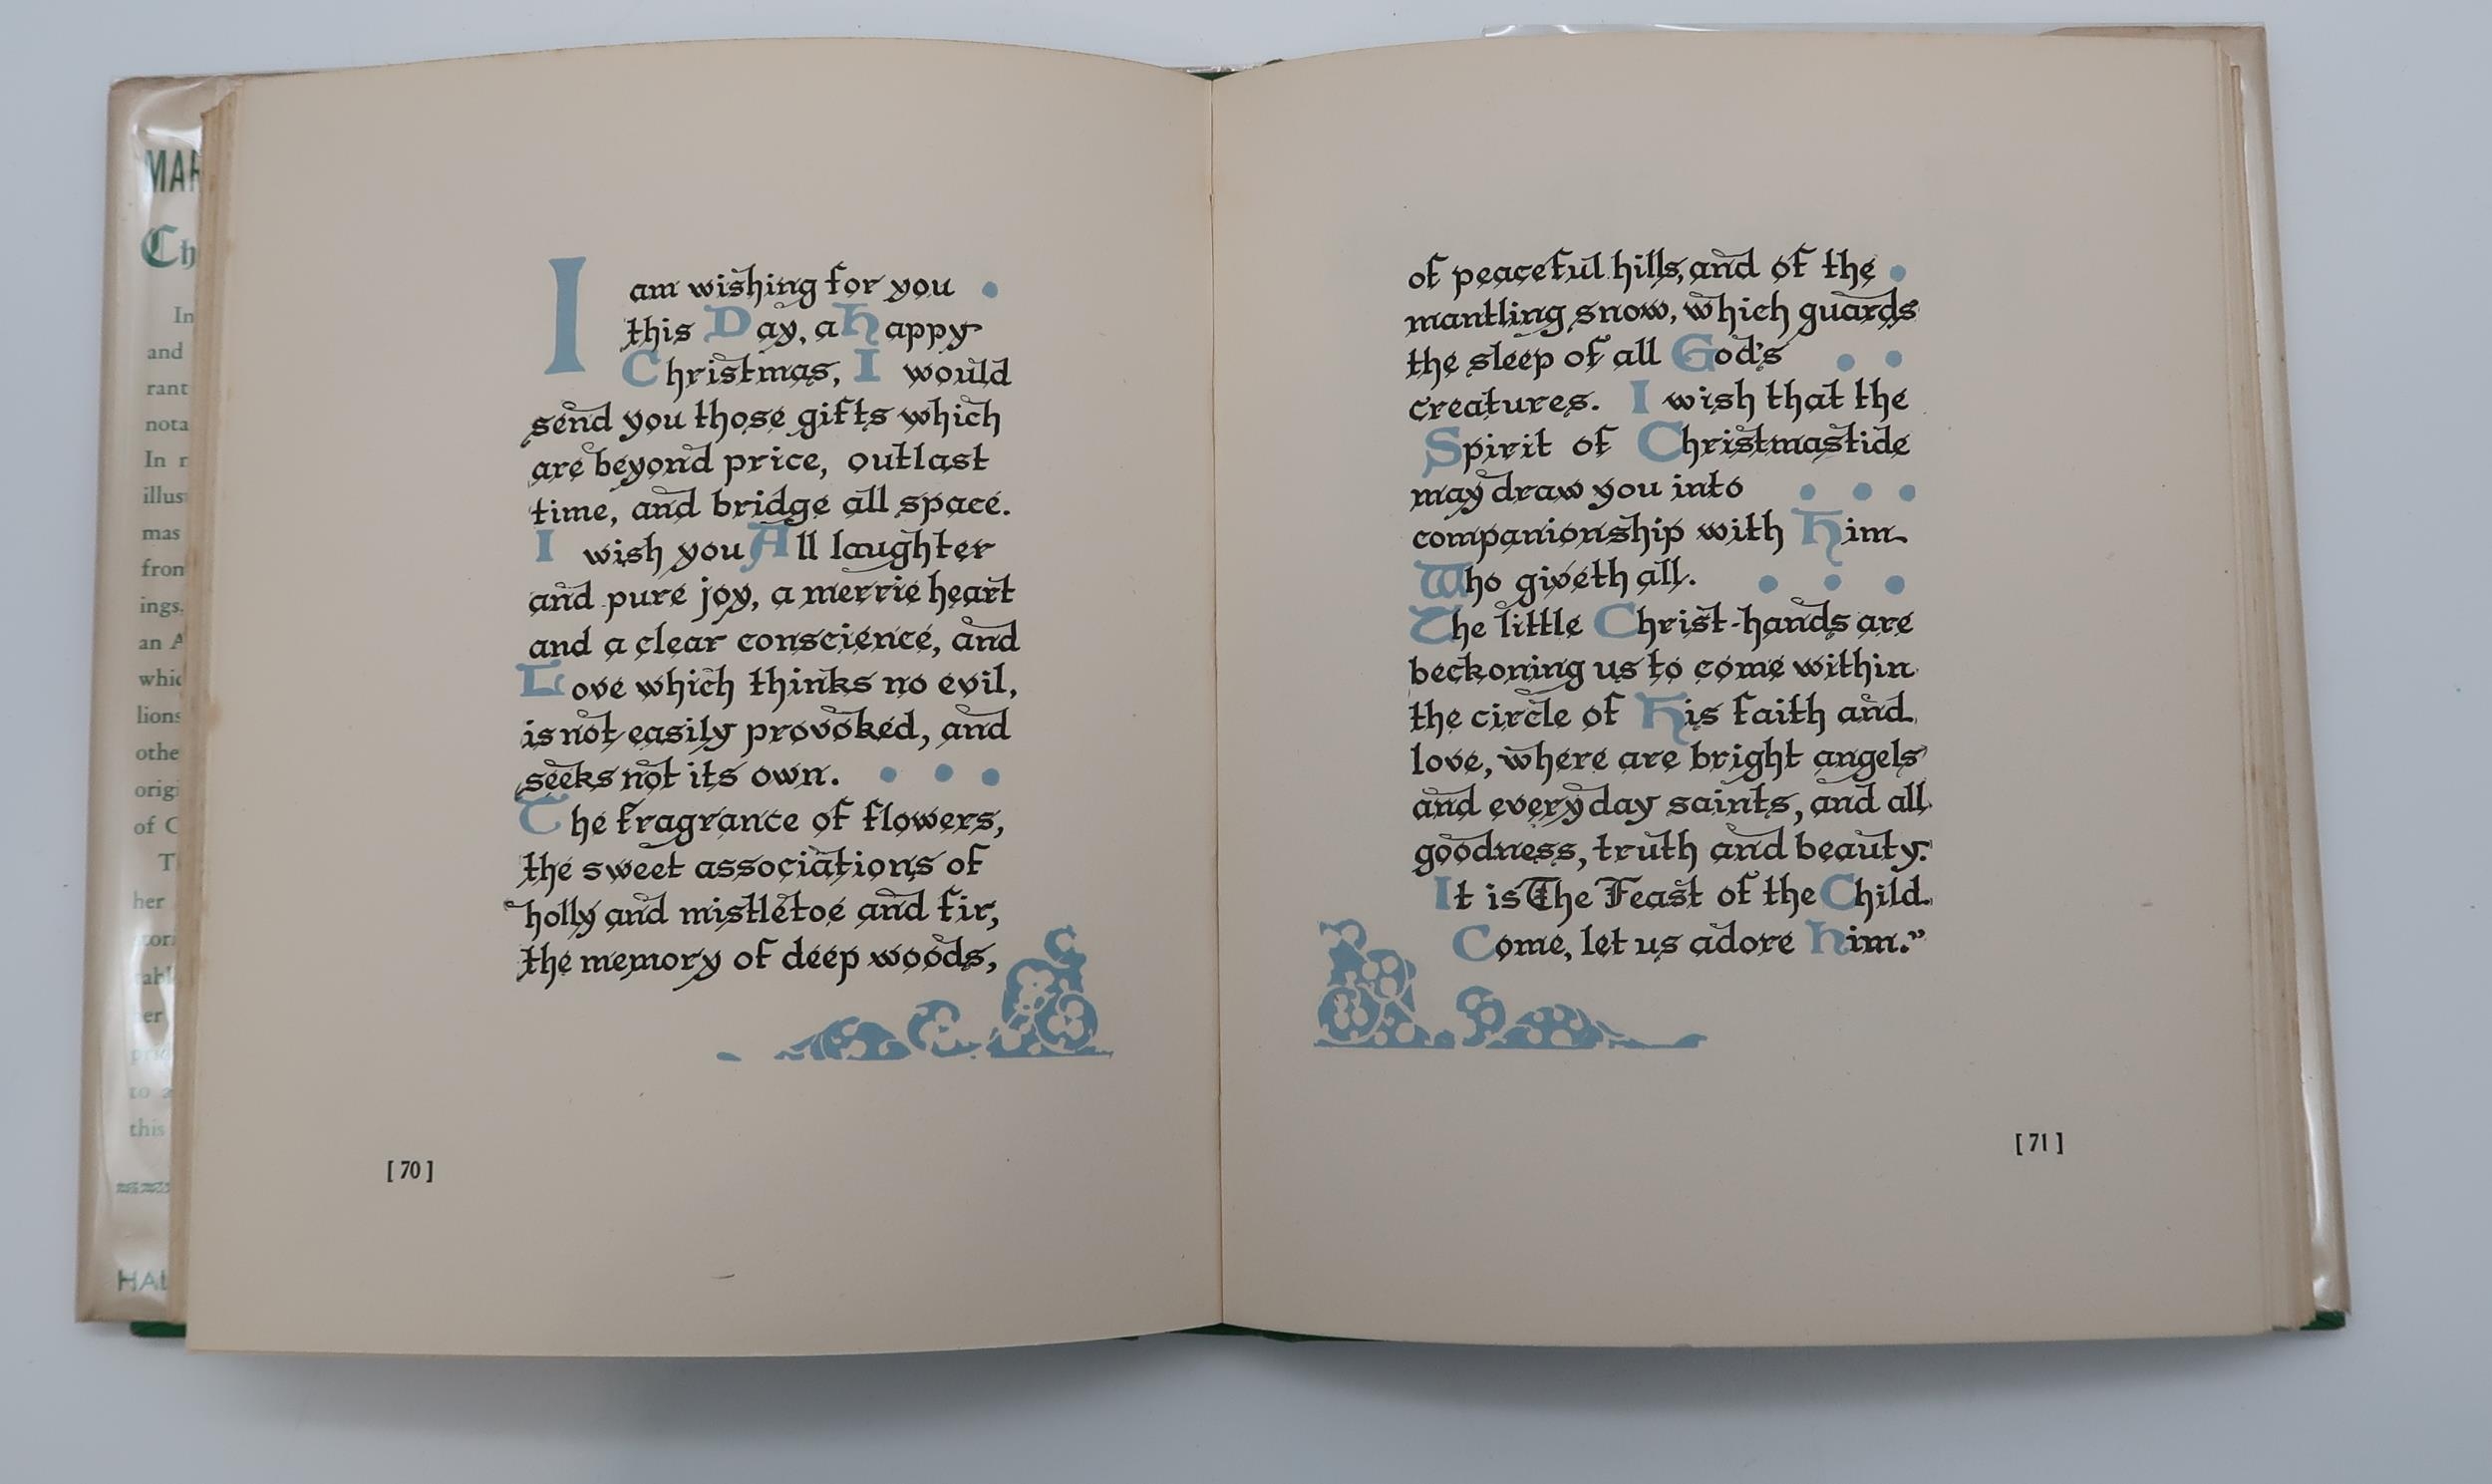 MAR
Ch
In
and
rant
nota
In r
illus
mas
from
ings.
an A
whic
lions
othe
origi
of C
T
her
tori
cabl
her
pride
to a
this
HAL
I am wishing for you
this Day, a Happy
Christmas, I would
send you those gifts which
are beyond price, outlast
time, and bridge all space.
I wish you All laughter
and pure joy, a merrie heart
and a clear conscience, and
Love which thinks no evil,
is not easily provoked, and
seeks not its own.
The fragrance of flowers,
the sweet associations of
holly and mistletoe and fir,
the memory of deep woods,
[ 70 ]
of peaceful hills, and of the
mantling snow, which guards
the sleep of all God's
creatures. I wish that the
Spirit of Christmastide
may draw you into
companionship with Him
Who giveth all.
The little Christ-hands are
beckoning us to come within
the circle of His faith and
love, where are bright angels
and everyday saints, and all
goodness, truth and beauty.
It is The Feast of the Child.
Come, let us adore Him."
[ 71 ]